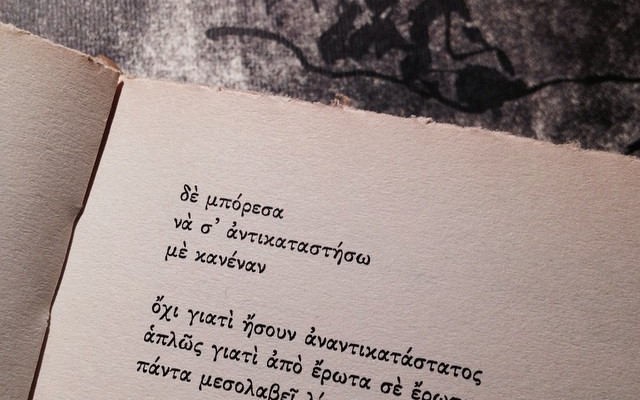 δὲ μπόρεσα
νὰ σ’ ἀντικαταστήσω
μὲ κανέναν
ὄχι γιατὶ ἤσουν ἀναντικατάστατος
ἁπλῶς γιατὶ ἀπὸ ἔρωτα σὲ
πάντα μεσολαβεῖ